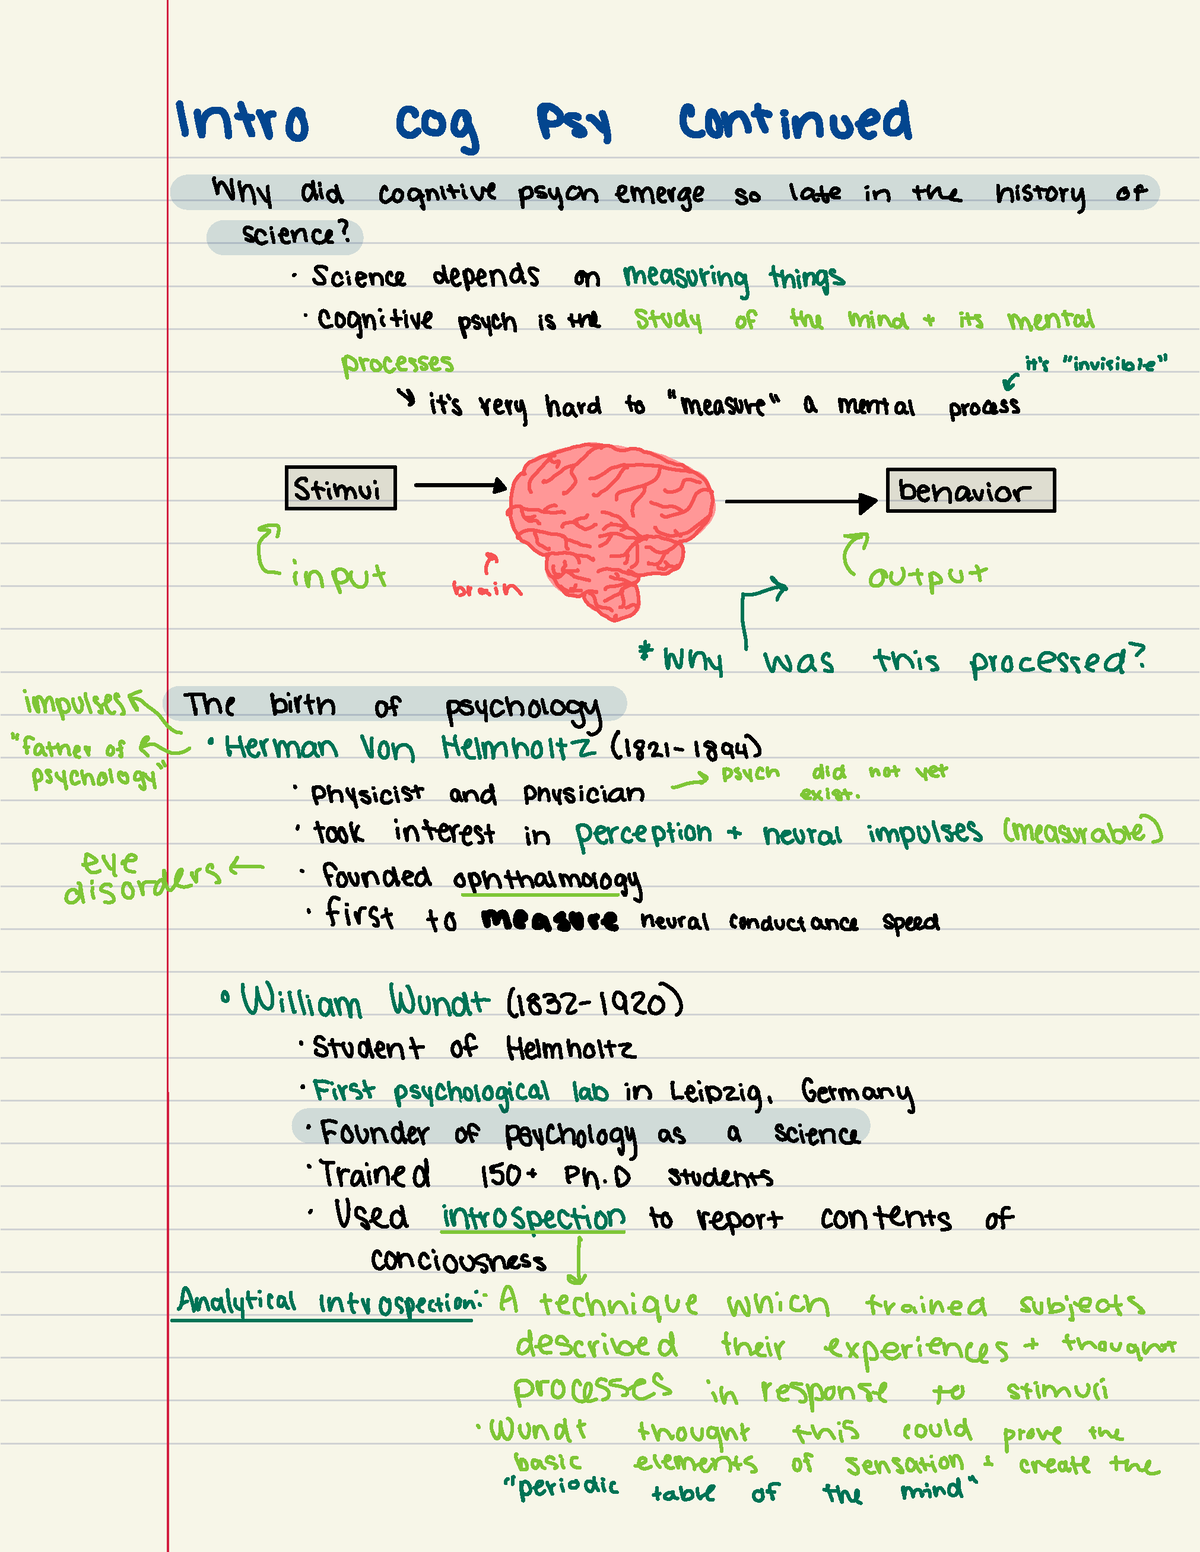 Intro cog Psy continued
Why did cognitive psych emerge so late in the history of
science?
· Science depends on measuring things
· Cognitive psych is the study of the mind + its mental
processes
it's "invisible"
it's very hard to "measure" a mental process
Stimui
behavior
input
brain
output
*Why was this processed?
impulses
The birth of psychology
"father of
psychology"
• Herman Von Helmholtz (1821-1894)
psych did not yet
exist.
· Physicist and Physician
· took interest in perception + neural impulses (measurable)
eye
disorders
· founded ophthalmology
· first to measure neural conductance speed
• William Wundt (1832-1920)
· Student of Helmholtz
· First psychological lab in Leipzig, Germany
· Founder of psychology as a science
· Trained 150+ Ph.D students
· Used introspection to report contents of
conciousness
Analytical introspection: · A technique which trained subjects
described their experiences + thought
processes in response to stimuli
· Wundt thought this could prove the
basic elements of sensation + create the
"periodic table of the mind"